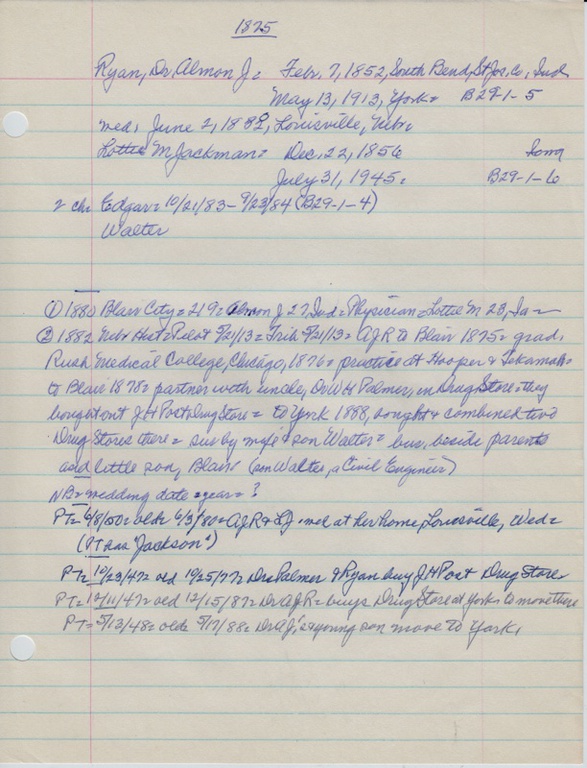 1825
Ryan, Dr. Almon J = Febr. 7, 1852, South Bend, St Jos. Co, Ind
May 13, 1913, York = B29-1-5
wed, June 2, 1880, Louisville, Nebr
Lottie M Jackman = Dec. 22, 1856
July 31, 1945. B29-1-6
2 ch: Edgar = 10/21/83 - 9/23/84 (B29-1-4)
Walter
① 1880 Blair City = 219 = Almon J 27, Ind = Physician = Lottie M 23, Ia =
② 1882 Nebr Hist = Pilot 5/21/13 = Trib 5/21/13 = AJR to Blair 1875 = grad.
Rush Medical College, Chicago, 1876 = practice at Hooper & Tekamah =
to Blair 1878 = partner with uncle, Dr WH Palmer, in Drug Store = they
bought out J H Post Drug Store = to York 1888, bought & combined two
Drug Stores there = sur by wife & son Walter = bur, beside parents
and little son, Blair (son Walter, a Civil Engineer)
NB = wedding date = year = ?
PT = 6/8/50 = olde 6/3/80 = AJR & LJ wed at her home, Louisville, Wed =
(PT has "Jackson")
PT = 10/23/47 = old 10/25/77 = Drs Palmer & Ryan buy J H Post Drug Store
PT = 12/11/47 = old 12/15/87 = Dr AJR = buys Drug Store at York, to move there
PT = 5/13/48 = olde 5/17/88 = Dr AJ, & young son move to York,